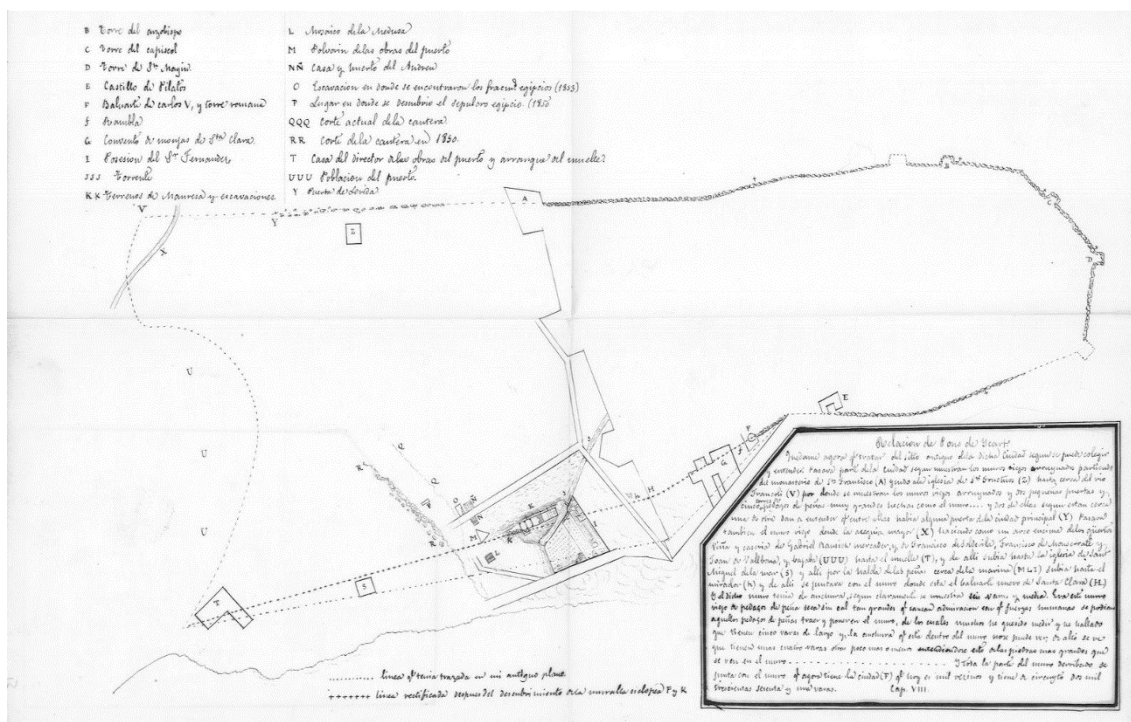 B Torre del arzobispo
C Torre del capiscol
D Torre de Sn Magin
E Castillo de Pilatos
F Baluarte de carlos V, y torre romana
f Rambla
G Convento de monjas de Sta Clara.
I Posesion del Sr Fernandez
JJJ Torrente
KK Terrenos de Maureca y escavaciones
L Mosaico dela Medusa
M Polvorin delas obras del puerto
NÑ Casa y huerto del Andreu
O Escavacion en donde se encontraron los fracmts egipcios (1853)
P Lugar en donde se descubrió el sepulcro egipcio. (1850
QQQ Corte actual de la cantera
RR Corte dela cantera en 1850.
T Casa del director delas obras del puerto y arranque del muelle
UUU Poblacion del puerto.
Y Puerta de Lerida
V
Y
Z
A
X
B
C
D
U
U
U
Q
Q
R
R
P
O
NÑ
M
L
K
K
J
J
I
H
G
f
F
E
S
T
Relacion de Pons de Ycart
Quedame agora de tratar del sitio antiguo dela dicha Ciudad segun se puede colegir
y entender. Pasava parte dela ciudad segun muestran los muros viejos arruynados partiendo
del monasterio de Sn Francisco (A) yendo ala iglesia de Sn Fructuos (Z) hasta cerca del rio
Francoli (V) por donde se muestran los muros viejos arruynados y dos pequenas puertas y
cinco pedazos de peñas muy grandes hechas como el muro.... y dos de ellas segun estan cerca
una de otra dan a entender qe entre ellas habia alguna puerta dela ciudad principal (Y) Pasava
tambien el muro viejo donde la acequia mayor (X) haciendo como un arco encima delos guertos
Viña y caseria de Gabriel mercader, y de Francisco de Soldevila, Francisco de Monserrat y
Joan de Vallbona, y bajaba (UUU) hasta el muelle (T), y de alli subia hasta la iglesia de Sant
Miguel dela mar (S) y alli por la halda delas peñas cerca dela marina (MLI) subia hasta el
mirador (K) y de alli se juntava con el muro donde esta el baluarte nuevo de Santa Clara (H.)
Y el dicho muro tenia de anchura, segun claramente se muestra seis varas y media. Era este muro
viejo de pedazos de peña seca sin cal tan grandes qe causan admiracion con qe fuerzas humanas se podian
aquellos pedazos de peñas traer y poner en el muro, de los cuales muchos he querido medir y he hallado
que tienen cinco varas de largo y la anchura qe esta dentro del muro no se puede ver; de alli se ve
que tienen unas cuatro varas otro poco mas o menos entendiendose esto delas piedras mas grandes que
se ven en el muro .................... Y toda la parte del muro derribado se
junta con el muro qe agora tiene la ciudad (F) qe hoy es mil vecinos y tiene de circuyto dos mil
trescientas setenta y una varas. Cap. VIII.
.......... linea qe tenia trazada en mi antiguo plano
+++++++ linea rectificada despues del descubrimiento dela muralla ciclopea F y K